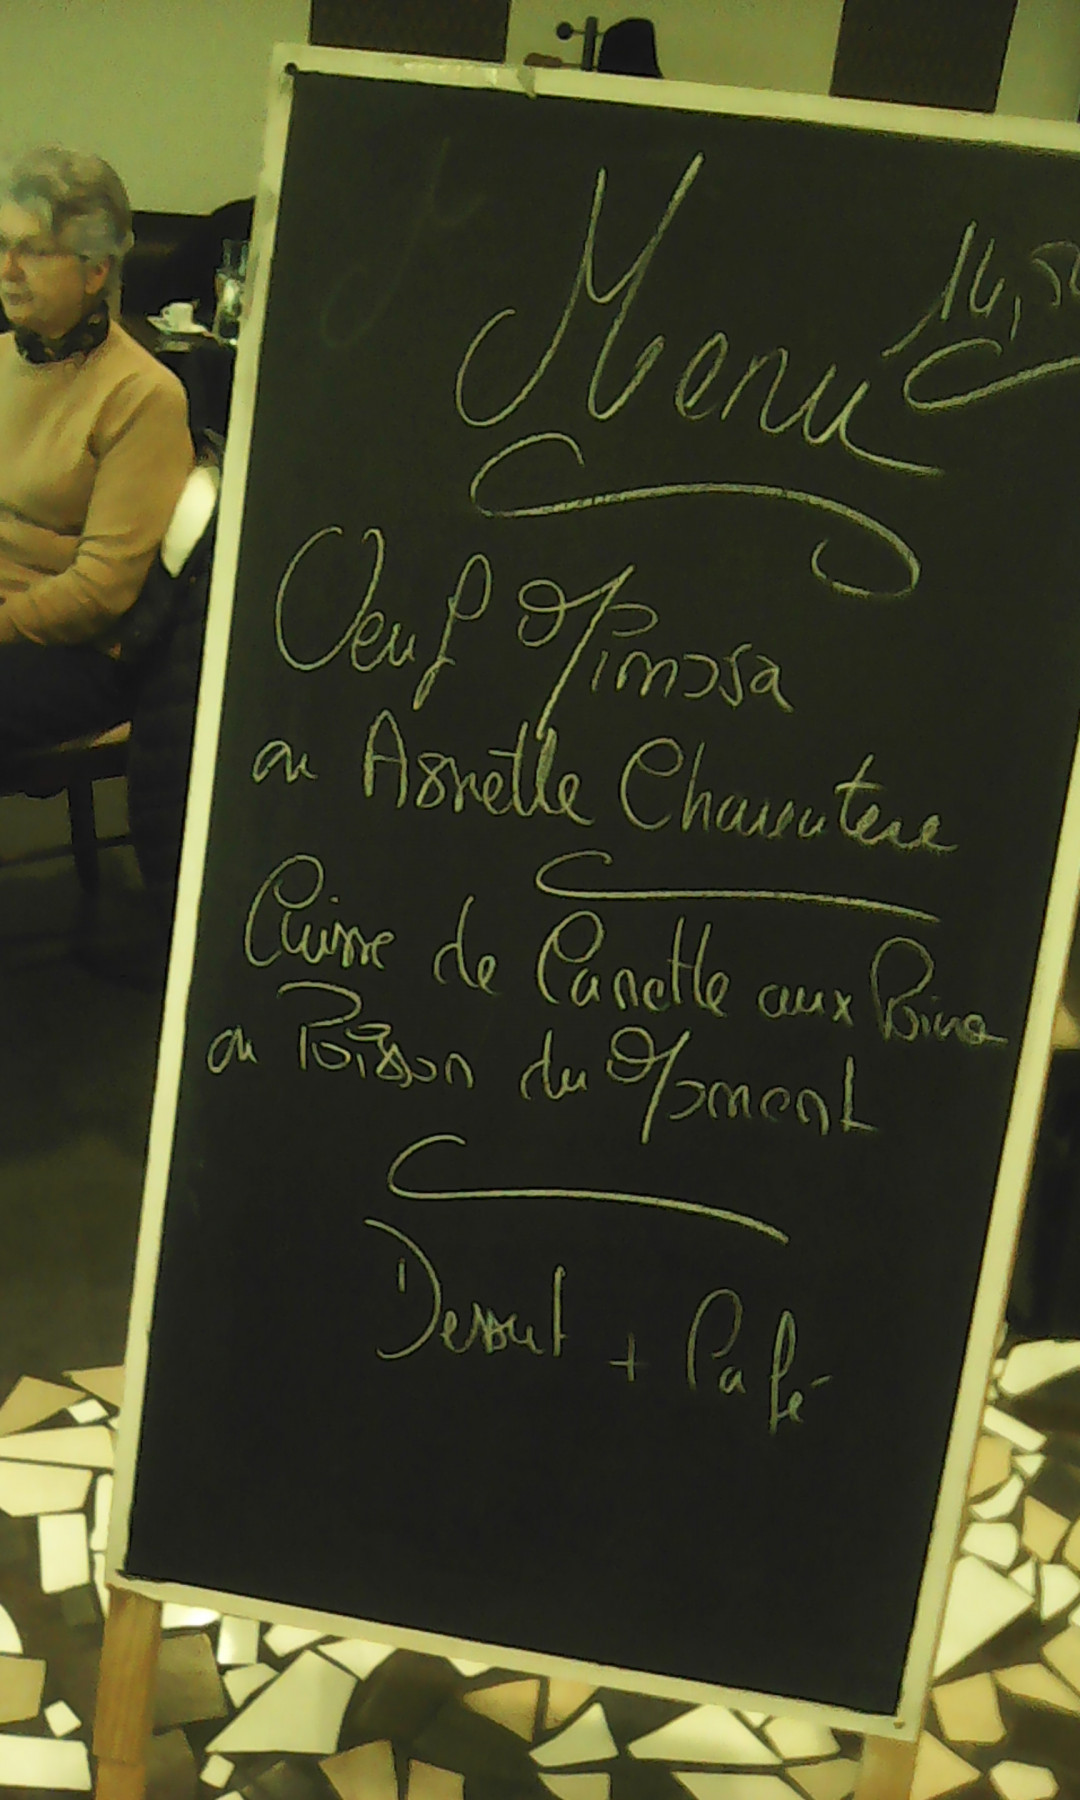 Menu 14,50
Oeuf Mimosa
ou Assiette Charcuterie
Cuisse de Canette aux Poires
ou Poisson du Moment
Dessert + Café